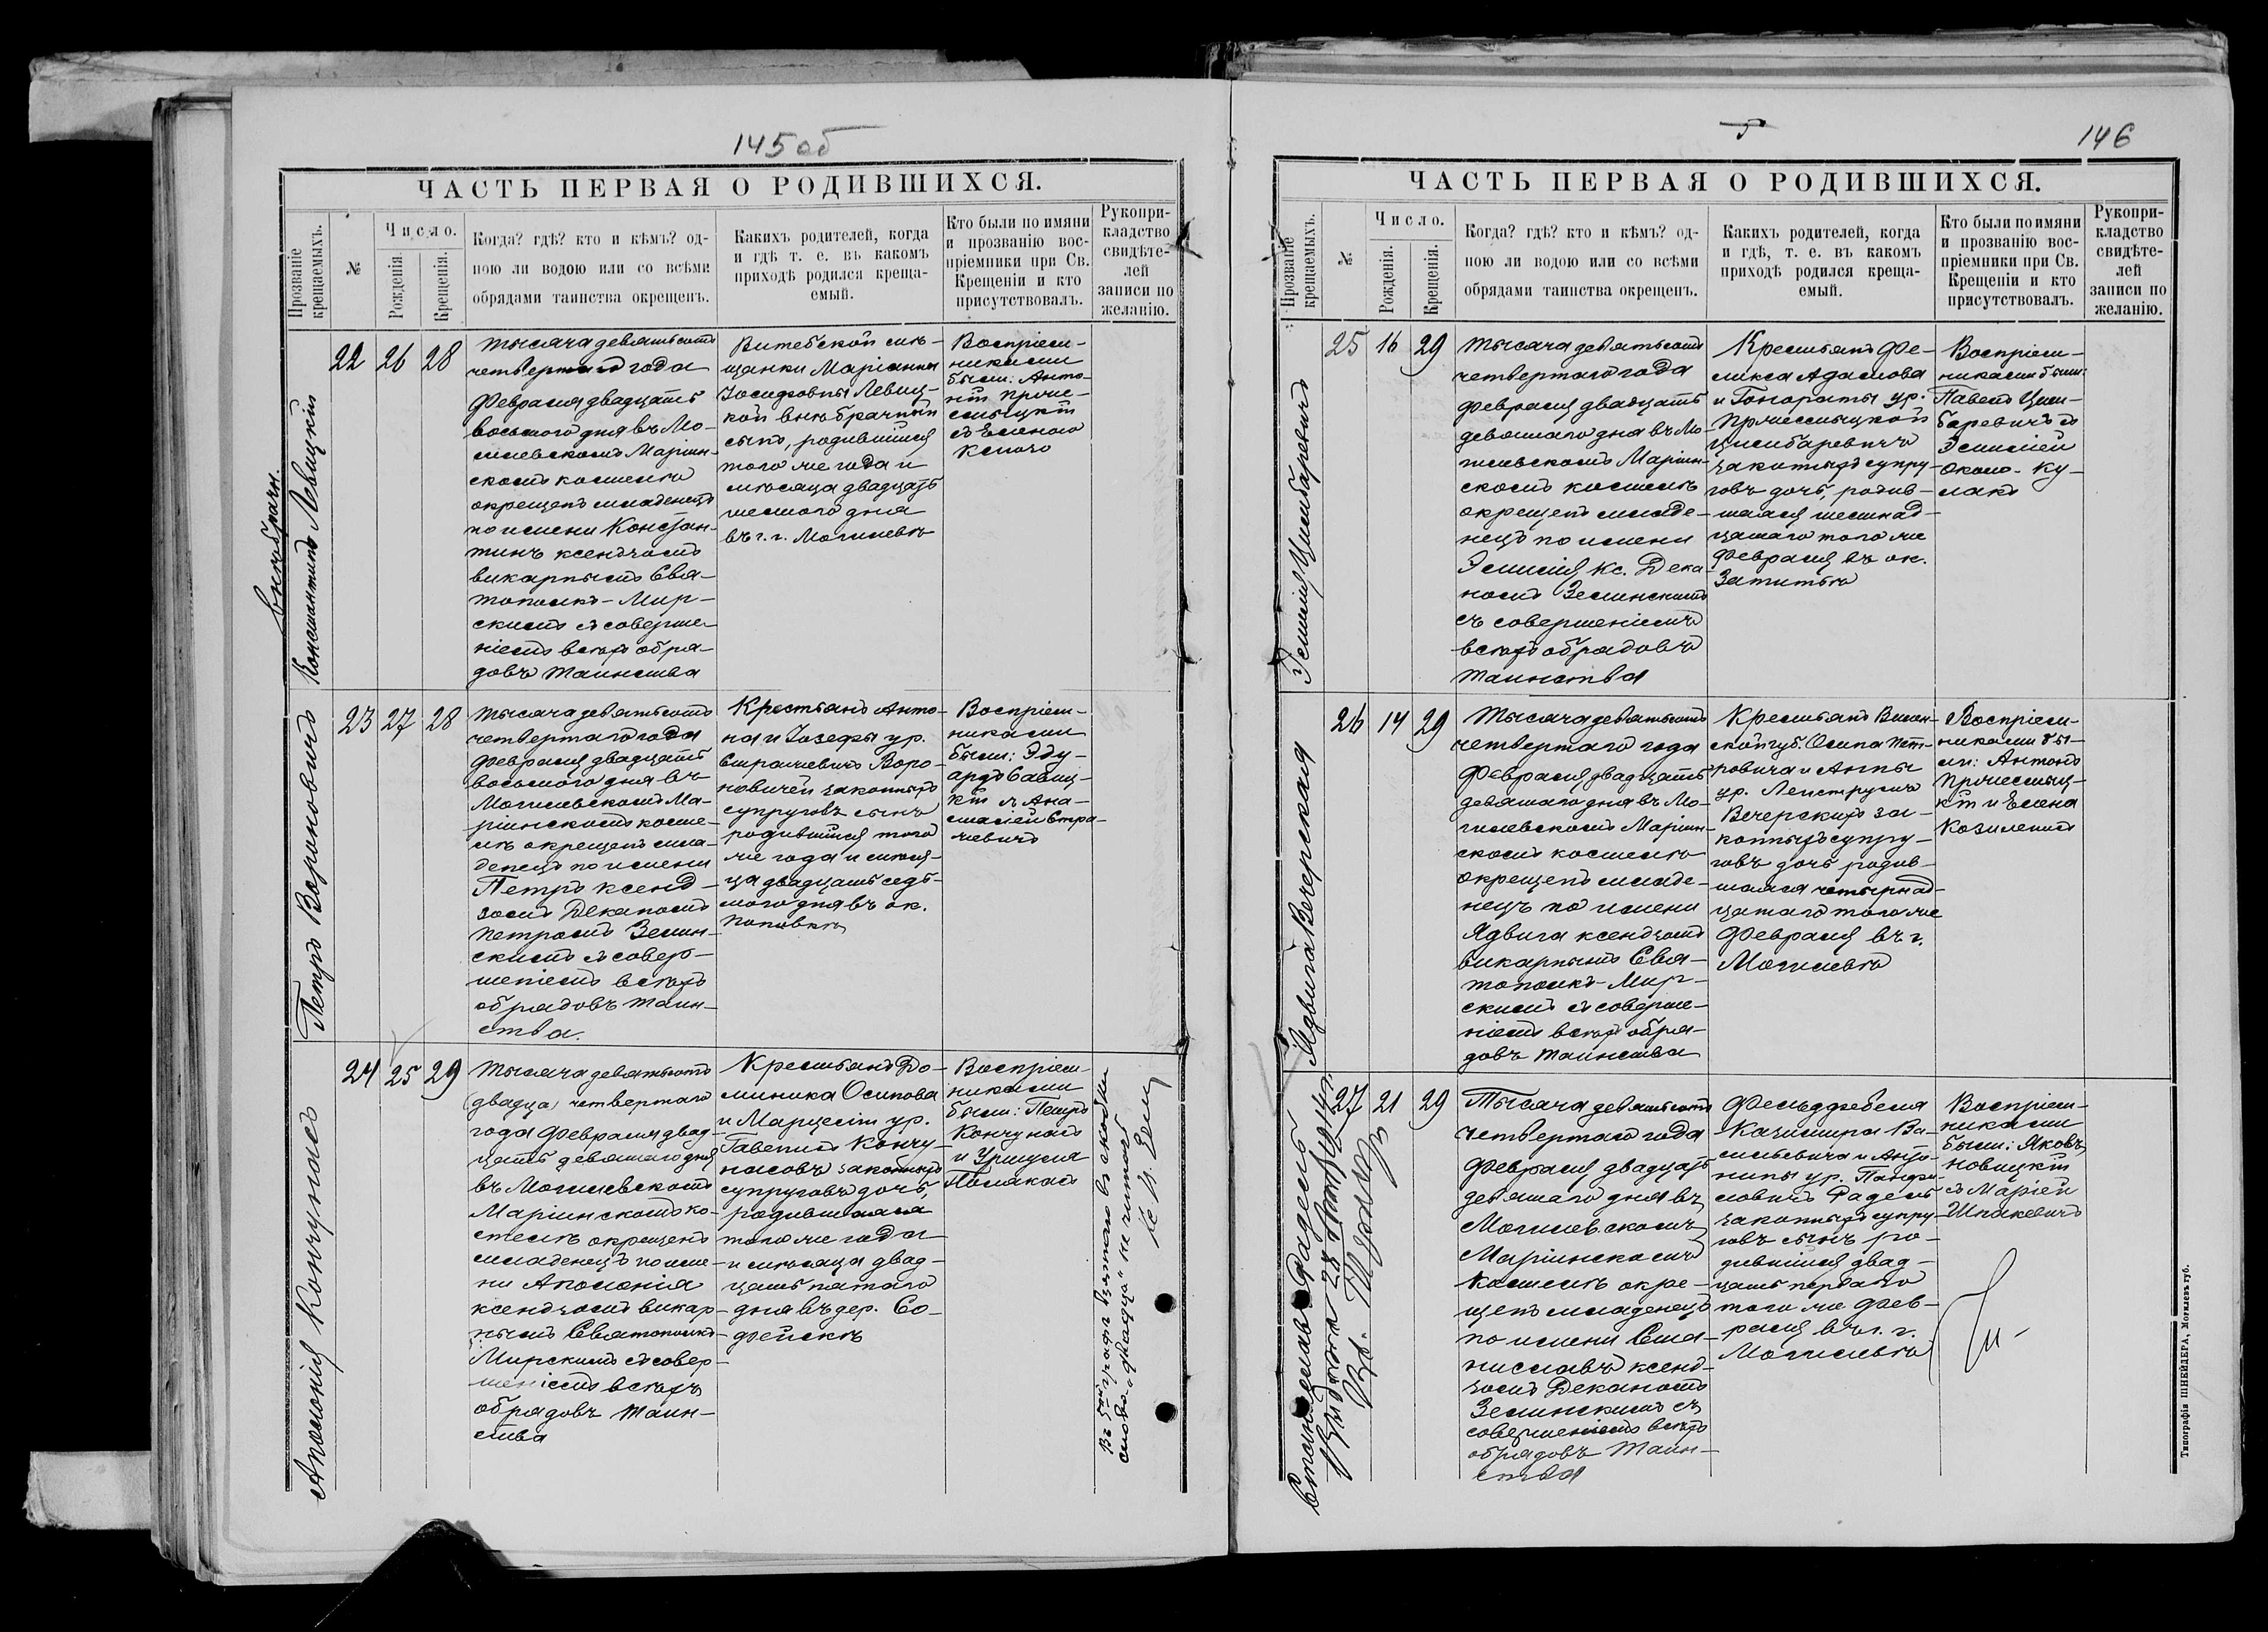 145 об
ЧАСТЬ ПЕРВАЯ О РОДИВШИХСЯ.
Прозваніе крещаемыхъ.
№
Число.
Рожденія.
Крещенія.
Когда? гдѣ? кто и кѣмъ? од-
ною ли водою или со всѣми
обрядами таинства окрещенъ.
Какихъ родителей, когда
и гдѣ т. е. въ какомъ
приходѣ родился креща-
емый.
Кто были по имяни
и прозванію вос-
пріемники при Св.
Крещеніи и кто
присутствовалъ.
Рукопри-
кладство
свидѣте-
лей
записи по
желанію.
внѣбрачн.
Константинъ Левицкій
22 26 28
Тысяча девятьсотъ
четвертаго года
Февраля двадцать
восьмого дня въ Мо-
гилевскомъ Маріин-
скомъ костелѣ
окрещенъ младенецъ
по имени Констан-
тинъ ксендзомъ
викарнымъ Свя-
тополкъ-Мир-
скимъ съ соверше-
ніемъ всѣхъ обря-
довъ таинства
Витебской мѣ-
щанки Маріанны
Іосифовны Левиц-
кой внѣбрачный
сынъ, родившійся
того же года и
мѣсяца двадцать
шестого дня
въ г. г. Могилевѣ
Воспріем-
никами
были: Анто-
ній Приче-
съ Еленою
Петръ Вороновичъ
23 27 28
Тысяча девятьсотъ
четвертаго года
Февраля двадцать
восьмого дня въ
Могилевскомъ Ма-
ріинскомъ косте-
лѣ окрещенъ мла-
денецъ по имени
Петръ ксенд-
зомъ Деканомъ
Петромъ Земин-
скимъ съ совер-
шеніемъ всѣхъ
обрядовъ таин-
ства.
Крестьянъ Анто-
на и Іозефы ур.
Страчевичъ Воро-
новичей законныхъ
супруговъ сынъ
родившійся того
же года и мѣся-
ца двадцать седь-
мого дня въ ок.
Поповкѣ
Воспріем-
никами
были: Эду-
ардъ Савиц-
кій и Ана-
стасіей Стра-
чевичъ
Аполонія Кончунасъ
24 25 29
Тысяча девятьсотъ
(двадца) четвертаго
года Февраля двад-
цать девятаго дня
въ Могилевскомъ
Маріинскомъ ко-
стелѣ окрещенъ
младенецъ по име-
ни Аполонія
ксендзомъ викар-
нымъ Святополкъ-
Мирскимъ съ совер-
шеніемъ всѣхъ
обрядовъ таин-
ства
Крестьянъ До-
миника Осипова
и Марцеліи ур.
Гавенисъ Кончу-
насовъ законныхъ
супруговъ дочь,
родившаяся
того же года
и мѣсяца двад-
цать пятаго
дня въ дер. Со-
фейскѣ
Воспріем-
никами
были: Петръ
Кончунасъ
и Уршуля
Полякасъ
Въ 5-й графѣ взятаго въ скобки
слово „двадца" не читать
146
ЧАСТЬ ПЕРВАЯ О РОДИВШИХСЯ.
Прозваніе крещаемыхъ.
№
Число.
Рожденія.
Крещенія.
Когда? гдѣ? кто и кѣмъ? од-
ною ли водою или со всѣми
обрядами таинства окрещенъ.
Какихъ родителей, когда
и гдѣ, т. е. въ какомъ
приходѣ родился креща-
емый.
Кто были по имяни
и прозванію вос-
пріемники при Св.
Крещеніи и кто
присутствовалъ.
Рукопри-
кладство
свидѣте-
лей
записи по
желанію.
Эмилія Цимбаревичъ
25 16 29
Тысяча девятьсотъ
четвертаго года
Февраля двадцать
девятаго дня въ Мо-
гилевскомъ Маріин-
скомъ костелѣ
окрещенъ младе-
нецъ по имени
Эмилія кс. Дека-
номъ Земинскимъ
съ совершеніемъ
всѣхъ обрядовъ
таинства
Крестьянъ Фе-
ликса Адамова
и Гонораты ур.
Цимбаревичъ
законныхъ супру-
говъ дочь, родив-
шаяся шестнад-
цатаго того же
Февраля въ ок.
Затитьѣ
Воспріем-
никами были:
Павелъ Цим-
баревичъ съ
Эмиліей
Около-Ку-
лакъ
Ядвига Вечерская
26 14 29
Тысяча девятьсотъ
четвертаго года
Февраля двадцать
девятаго дня въ Мо-
гилевскомъ Маріин-
скомъ костелѣ
окрещенъ младе-
нецъ по имени
Ядвига ксендзомъ
викарнымъ Свя-
тополкъ-Мир-
скимъ съ соверше-
ніемъ всѣхъ обря-
довъ таинства
Крестьянъ Вилен-
ской губ. Осипа Пет-
ровича и Анны
ур.
Вечерскихъ за-
конныхъ супру-
говъ дочь родив-
шаяся четырнад-
цатаго того же
Февраля въ г.
Могилевѣ
Воспріем-
никами бы-
ли: Антонъ
и Елена
Станиславъ Фадель
27 21 29
Тысяча девятьсотъ
четвертаго года
Февраля двадцать
девятаго дня въ
Могилевскомъ
Маріинскомъ
костелѣ окре-
щенъ младенецъ
по имени Ста-
ниславъ ксенд-
зомъ Деканомъ
Земинскимъ съ
совершеніемъ всѣхъ
обрядовъ таин-
ства
Фельдфебеля
Казимира Ва-
сильевича и Анто-
нины ур. Панфи-
ловичъ Фадель
законныхъ супру-
говъ сынъ ро-
дившійся двад-
цать перваго
того же Фев-
раля въ г. г.
Могилевѣ
Воспріем-
никами
были: Яковъ
Новицкій
съ Маріей
Шпакевичъ
Типографія ШНЕЙДЕРА, Могилевъ губ.